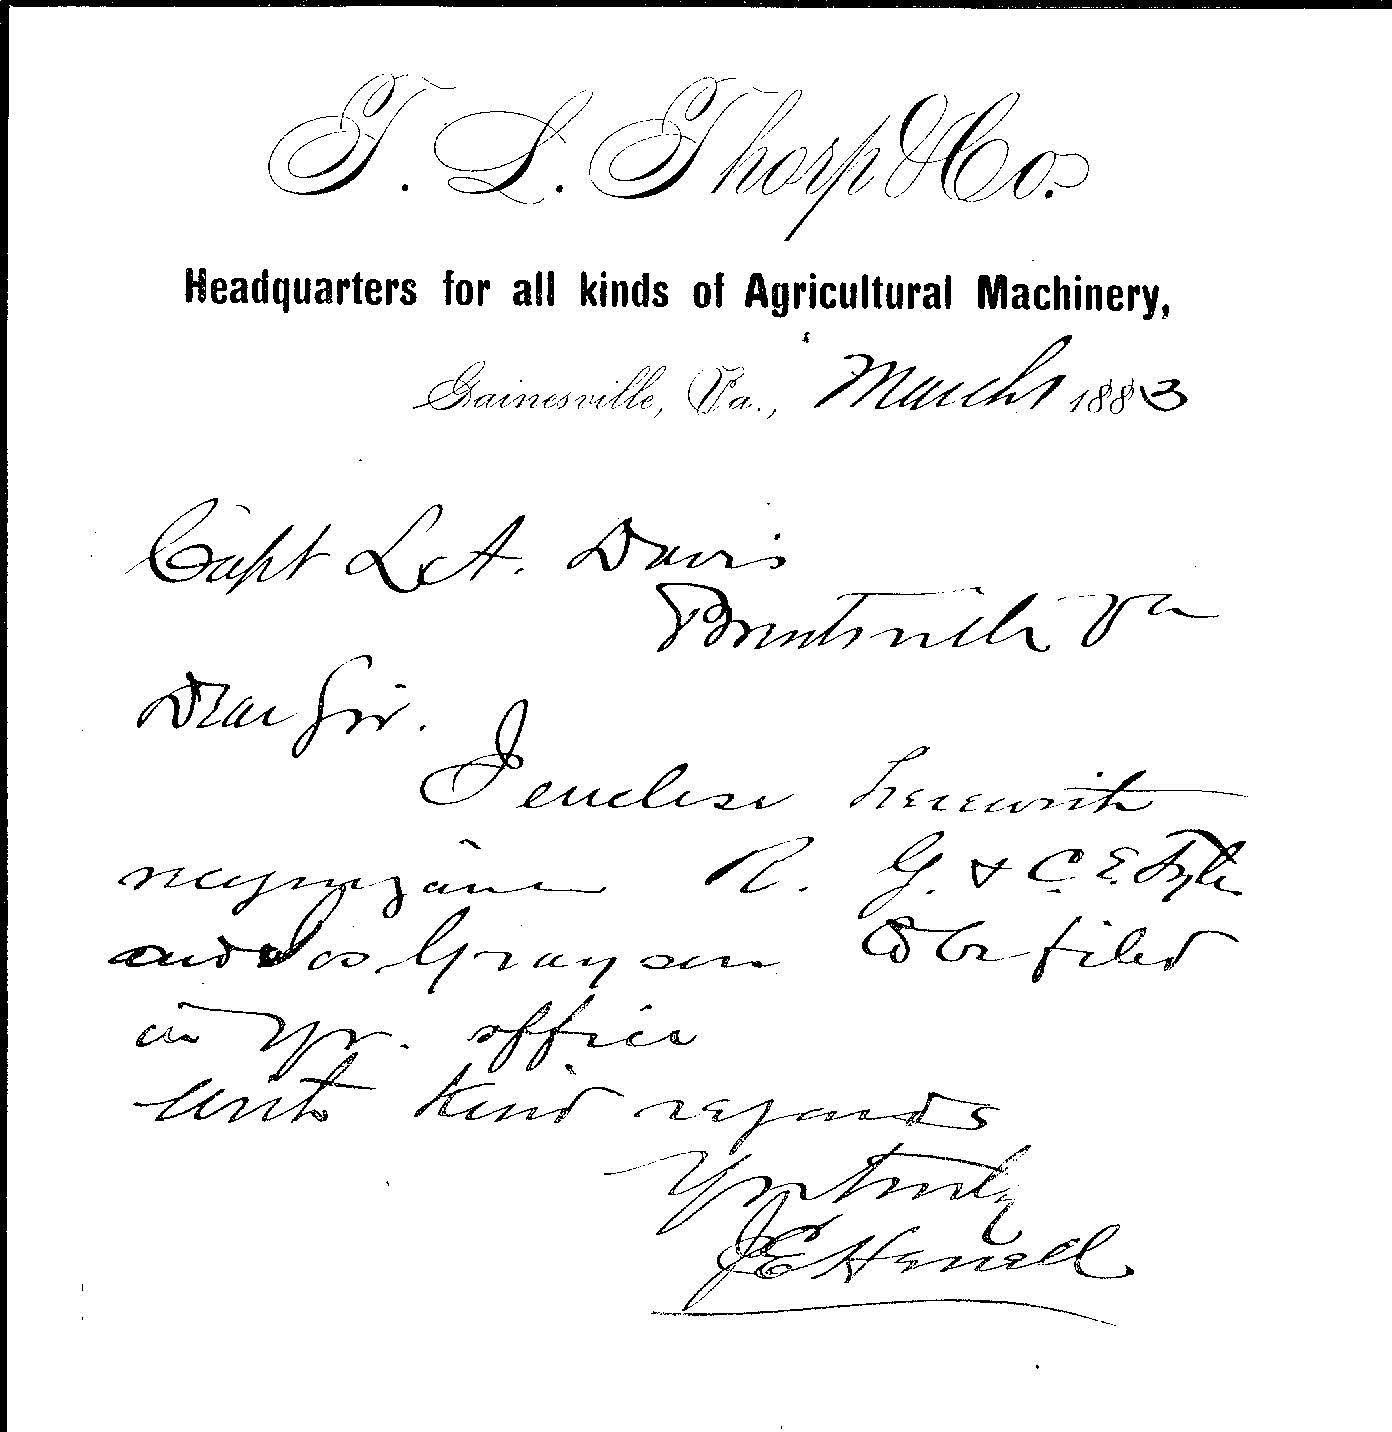 T. L. Thorp & Co.
Headquarters for all kinds of Agricultural Machinery,
Gainesville, Va., March 1 1883
Capt L. A. Davis
Brentsville Va
Dear Sir.
I enclose herewith
recognizance R. G. & C. E. Tyler
and Jos Grayson to be filed
in yr. office
with kind regards
Yrs truly
J E Herrell